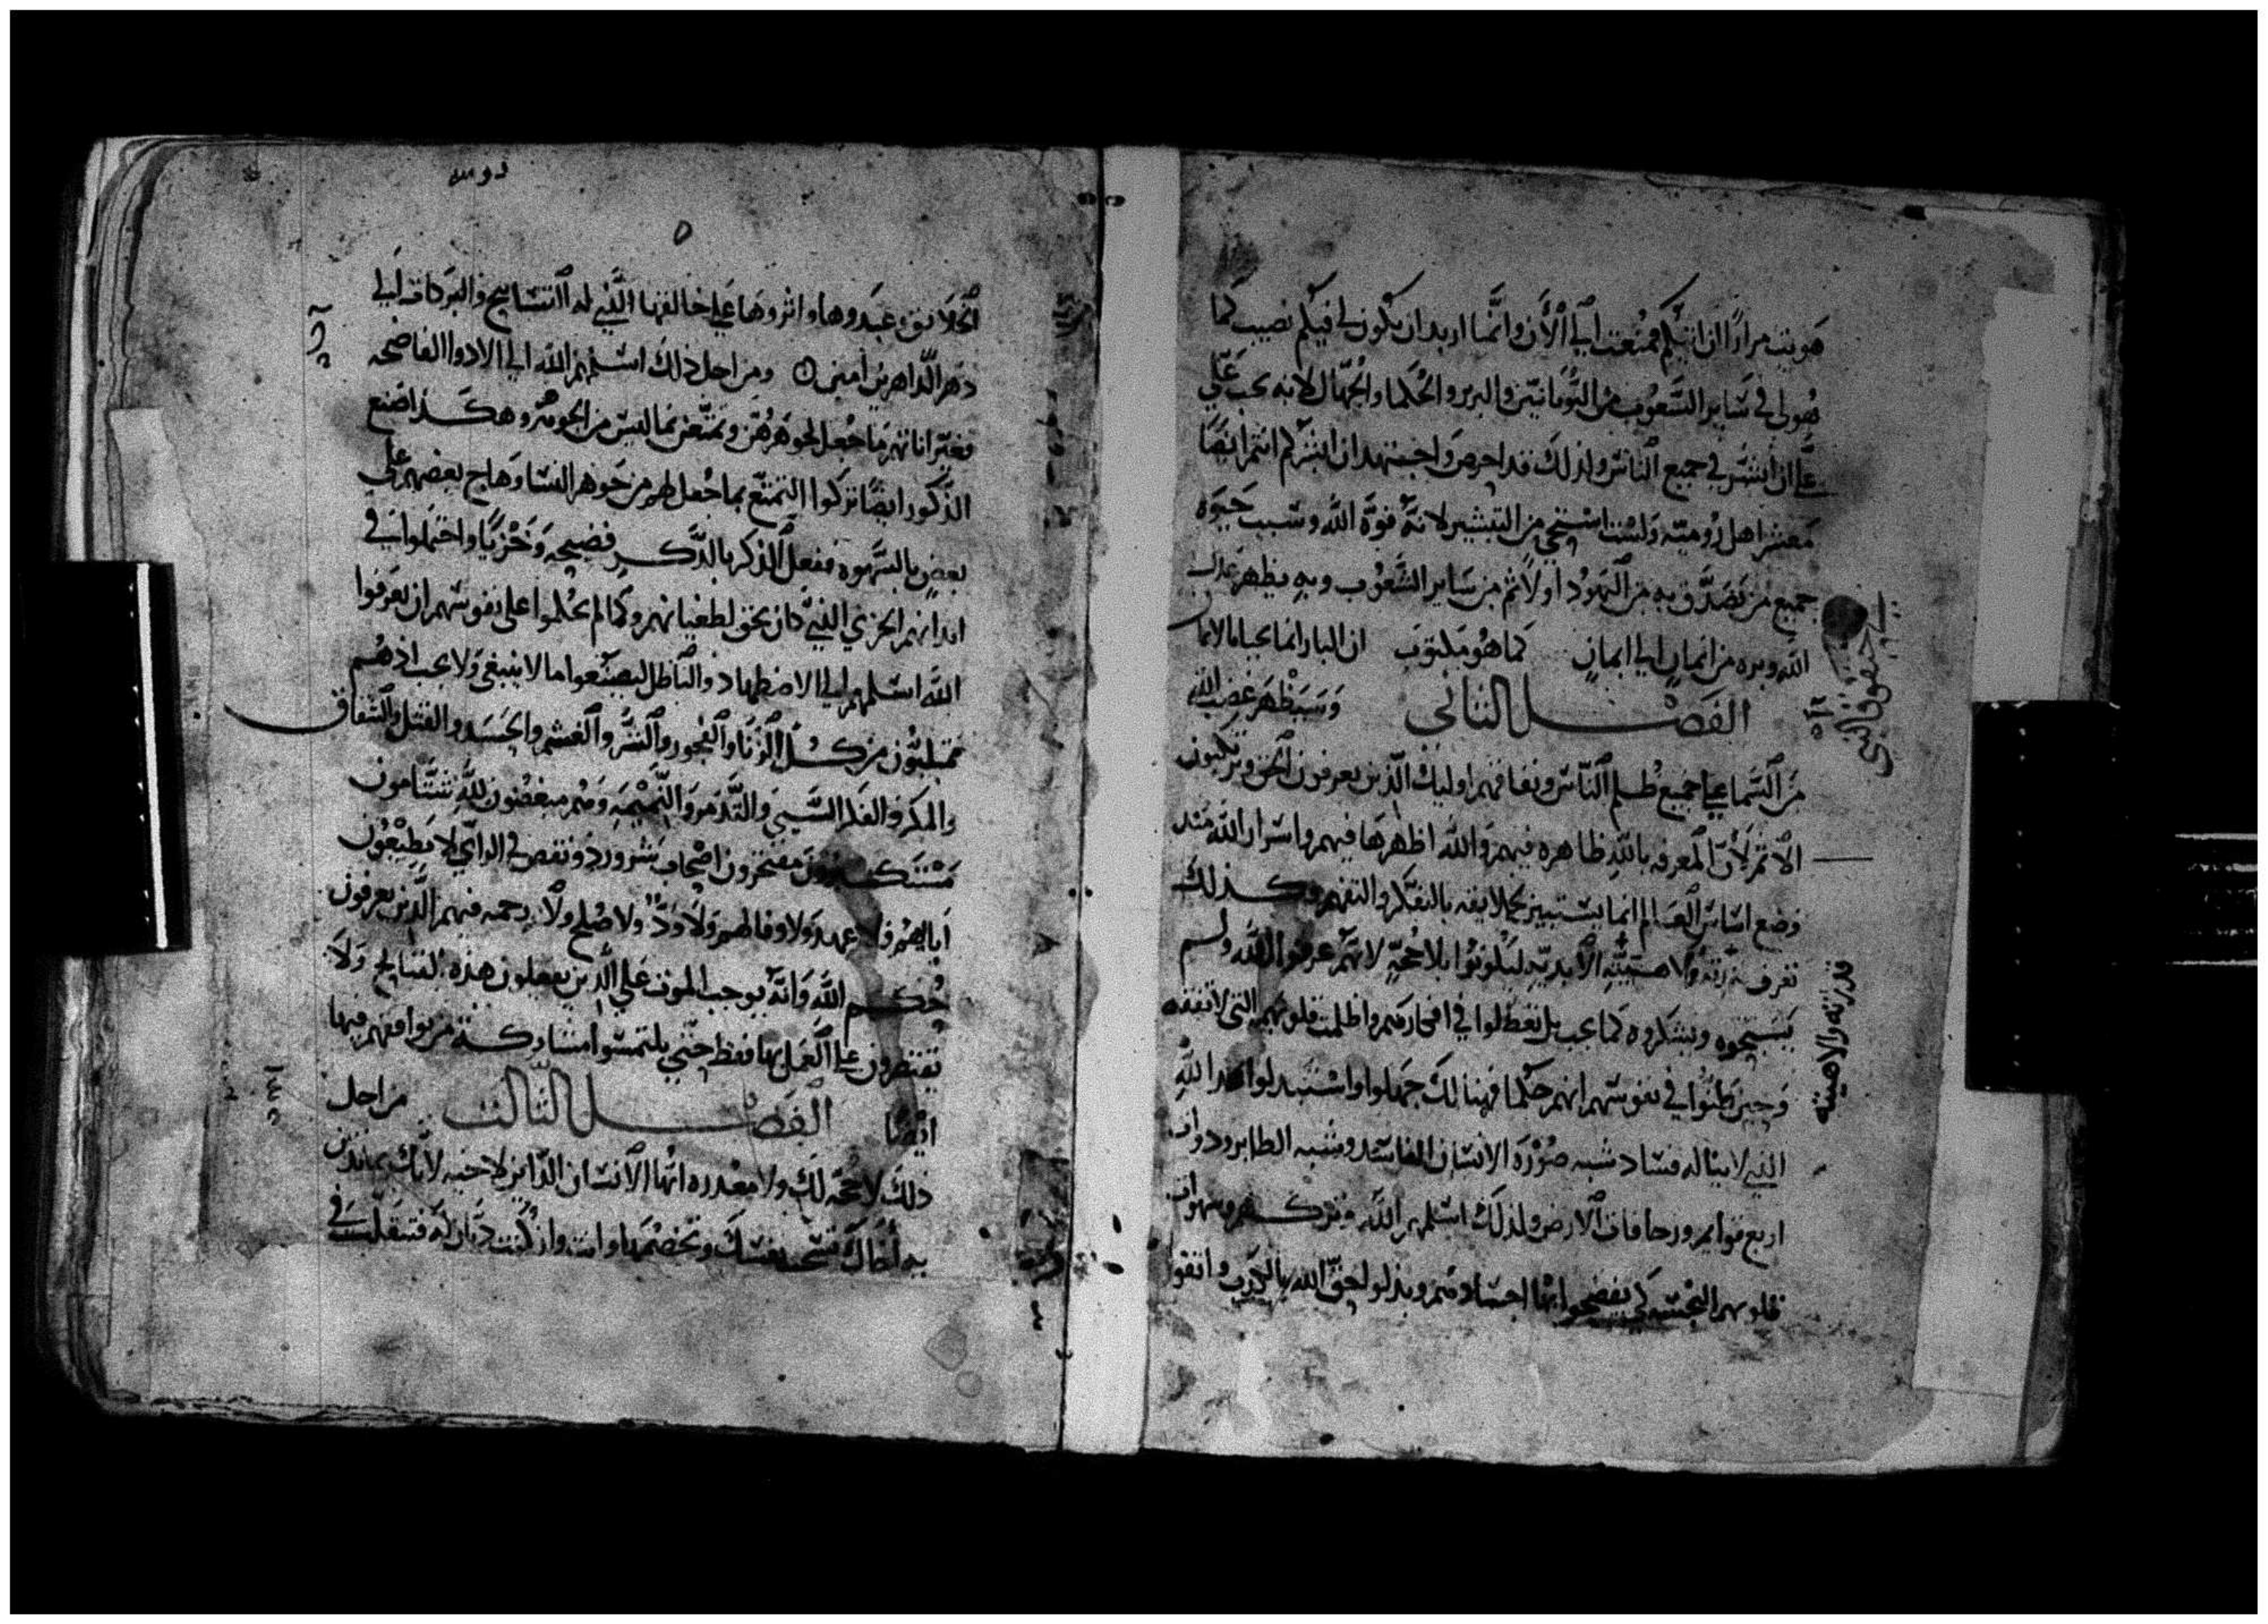 هويت مرارًا ان اتيكم فمنعت الي الأن وانما اريد ان يكون لي فيكم نصيب كما
هو لي في ساير الشعوب من اليونانيين والبربر والحكما والجهال لانه يجب عليّ
ان ابشر في جميع الناس ولذلك قد احرص واجتهد ان ابشركم انتم ايضًا
معشر اهل رومية ولست استحي من التبشير لانه قوة الله وسبب حيوة
جميع من تصدق به من اليهود اولاً ثم من ساير الشعوب وبه يظهر عدل
الله وبره من ايمان الي ايمان كما هو مكتوب ان البار انما يحيا بالايمان
الفصل الثاني وسيظهر غضب الله
من السما علي جميع ظلم الناس ونفاقهم اوليك الذين يعرفون الحق ويرتكبون
الاثم لأن المعرفه بالله ظاهره فيهم والله اظهرها فيهم واسرار الله منذ
وضع اساس العالم انما يستبين لخلايقه بالتفكر والتفهم وكذلك
تعرف قدرته ولاهيته الأبدية ليكونوا بلا حجةٍ لانهم عرفوا الله ولم
يسبحوه ويشكروه كما يجب بل تعطلوا في افكارهم واظلمت قلوبهم التي لا تفقه
وحين ظنوا في نفوسهم انهم حكما فهنالك جهلوا واستبدلوا مجد الله
الذي لا يناله فساد شبه صورة الانسان الفاسد وشبه الطاير وذوات
اربع قوايم وزحافات الارض ولذلك اسلمهم الله وتركهم وشهوات
قلوبهم النجسه كي يفضحوا بها اجسادهم وبدلوا حق الله بالكذب واتقوا
حبقوق النبي
قدرته ولاهيته
الخلايق وعبدوها واثروها علي خالقها الذي له التسابيح والبركات الي
دهر الداهرين امين ومن اجل ذلك اسلمهم الله الي الادوا الفاضحه
فغير اناثهم ما جعل لجوهرهن وتمتعن بما ليس من الجوهر وهكذا صنع
الذكور ايضًا تركوا التمتع بما جعل لهم من جوهر النسا وهاج بعضهم علي
بعضٍ بالشهوه ففعل الذكر بالذكر فضيحه وخزيًا واحتملوا في
ابدانهم الجزي الذي كان يحق لطغيانهم وكما لم يحكموا علي نفوسهم ان يعرفوا
الله اسلمهم الي الاضطهاد والباطل ليصنعوا ما لا ينبغي ولا يجب اذ هم
ممتليون من كل الزنا والفجور والشر والغشم والحسد والقتل والشقاق
والمكر والفكر السيي والتذمر والنميمه وهم مبغضون لله شتامون
مستكبرون مفتخرون اصحاب شرور ونقص في الراي لا يطيعون
ابايهم فلا عهد ولا وفا لهم ولا ودّ ولا صلح ولا رحمه فيهم الذين يعرفون
حكم الله وانه يوجب الموت علي الذين يفعلون هذه القبايح ولا
يقتصرون علي العمل بها فقط حتي يلتمسوا مشاركة من يوافقهم فيها
ايضًا الفصل الثالث من اجل
ذلك لا حجه لك ولا معذره ايها الانسان الداين لاخيه لانك بما تدين
به اخاك تشجب نفسك وتخصمها وانت وان كنت ديان له فتتقلب في